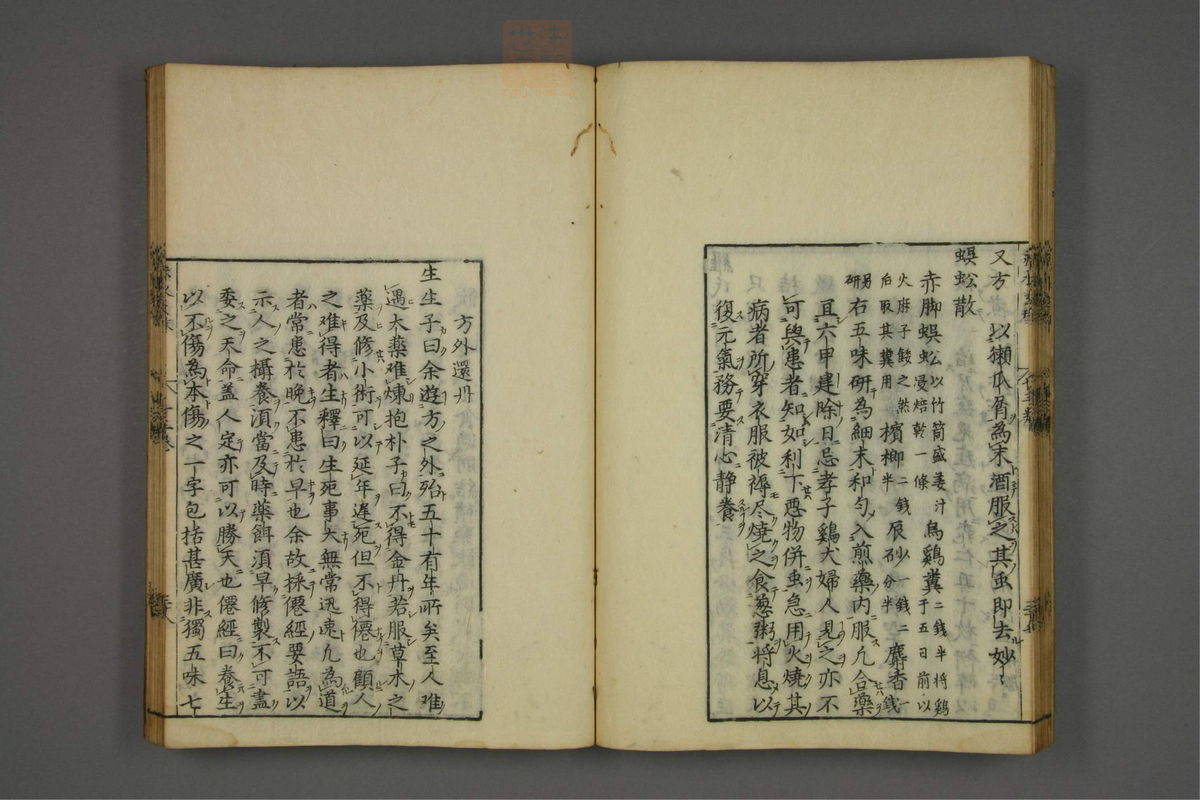 又方 以獺爪屑為末酒服之其虫即去妙
蜈蚣散
赤脚蜈蚣以竹筒盛姜汁浸焙乾一條 烏鷄糞二錢半将鷄于五日前以
火麻子餧之然后取其糞用 檳榔二錢半 辰砂一錢二分半 麝香一錢
另研 右五味研為細末和匀入煎藥内服凢合藥
宜六甲建除日忌孝子鷄犬婦人見之亦不
可與患者知如利下惡物併虫急用火燒其
病者所穿衣服被褥尽燒之食葱粥将息以
復元氣務要清心静養
方外還丹
生生子曰余遊方之外殆五十有年所矣至人难
遇大藥难煉抱朴子曰不得金丹若服草木之
藥及修小術可以延年遲死但不得僊也顧人
之难得者生釋曰生死事大無常迅速凢為道
者常患於晚不患於早也余故採僊經要語以
示人之攝養湏當及時藥餌湏早修製不可盡
委之天命盖人定亦可以勝天也僊經曰養生
以不傷為本傷之一字包括甚廣非獨五味七